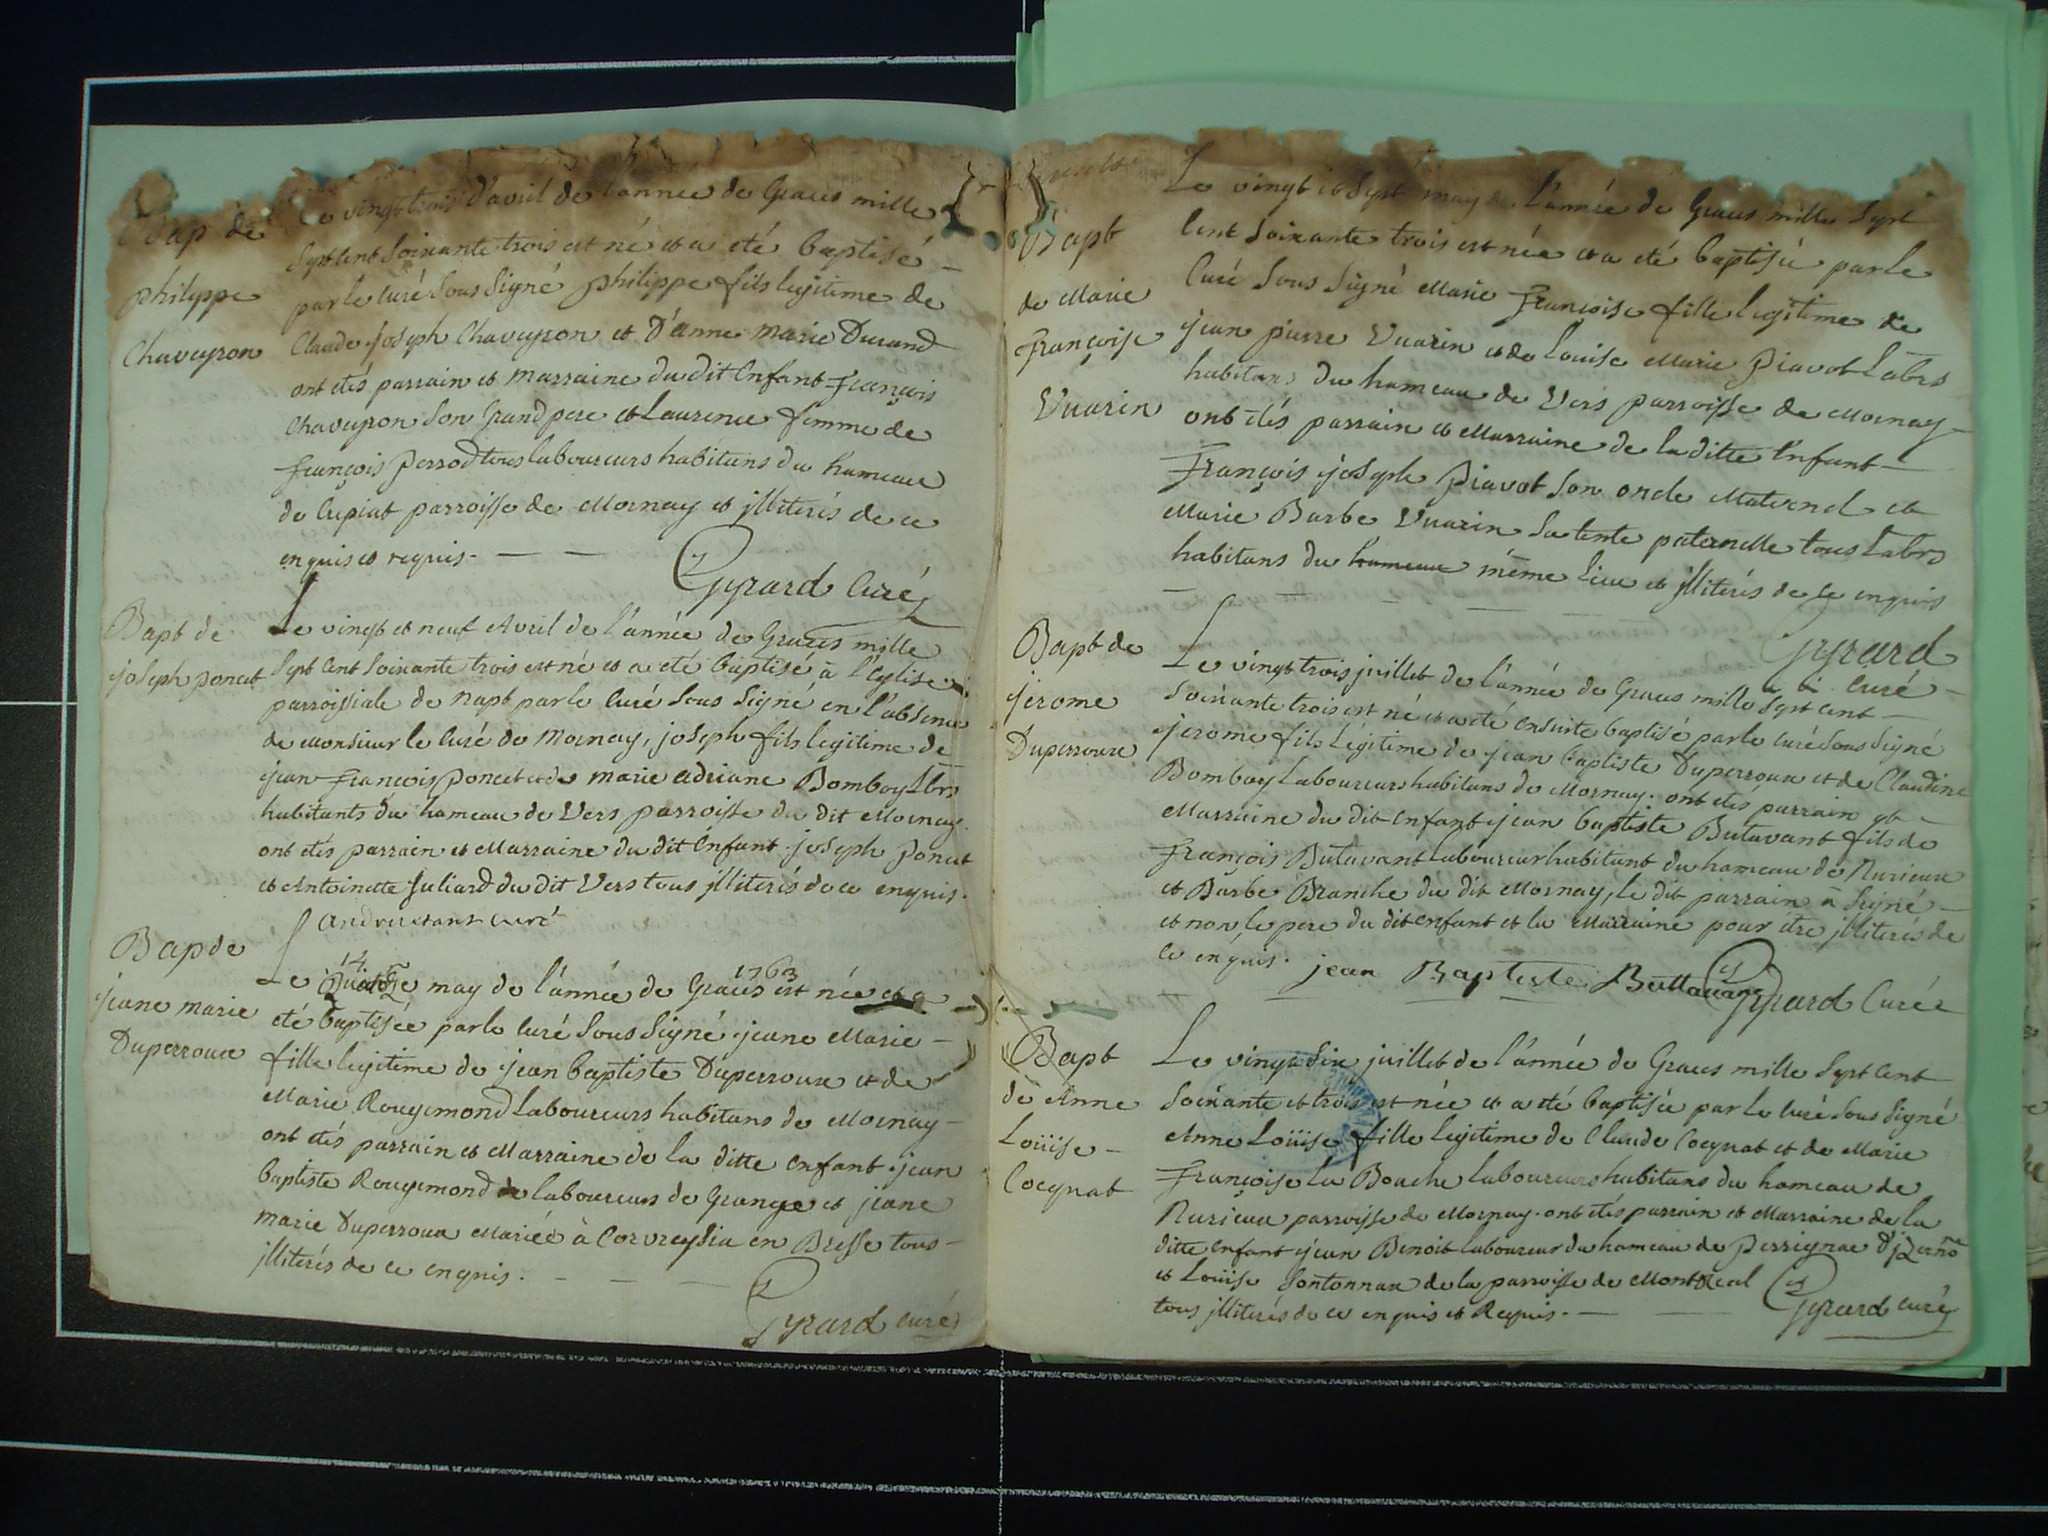 Bap de
philippe
Chaveyron
Le vingt trois d'avril de l'année de Graces mille
Sept Cent Soixante trois est né et a eté baptisé –
par le curé Sous Signé philippe fils legitime de
Claude Joseph Chaveyron et D'anne Marie Durand
ont etés parrain et marraine du dit Enfant François
Chaveyron Son Grand pere et Laurence femme de
François Perrod tous laboureurs habitans du hameau
de Crepiat parroisse de Mornay et jlliterés de ce
enquis et requis. — —
Gyrard Curé
Bapt de
joseph poncet
Le vingt et neuf Avril de l'année de Graces mille
Sept Cent Soixante trois est né et a eté baptisé à l'Eglise
parroissiale de Napt par le Curé Sous Signé en l'absence
de Monsieur le Curé de Mornay, joseph fils legitime de
jean François Poncet et de Marie Adriane Bomboy Lbrs
habitants du hameau de Vers parroisse du dit Mornay.
ont etés parrain et Marraine du dit Enfant joseph Poncet
et Antoinette Juliard du dit Vers tous jlliterés de ce enquis.
Bap de
jeane marie
Duperroux
14 1763
Le Quatorze may de l'année de Graces est née et a
eté baptisée par le Curé Sous Signé jeane Marie –
fille legitime de jean baptiste Duperroux et de
Marie Rougemond Laboureurs habitans de Mornay –
ont etés parrain et Marraine de la ditte enfant jean
baptiste Rougemond laboureurs de Grange et jeane
Marie Duperroux Mariée à Corveyssia en Bresse tous –
jlliterés de ce enquis. — — —
Gyrard curé
Bapt
de Marie
Françoise
Vuarin
Le vingt et Sept may de l'année de Graces mille Sept
Cent Soixante trois est née et a eté baptisée par le
Curé Sous Signé Marie Françoise fille legitime de
jean pierre Vuarin et de Louise Marie Piavot Labrs
habitans du hameau de Vers parroisse de Mornay –
ont etés parrain et Marraine de la ditte Enfant –
François joseph Piavot Son oncle Maternel et
Marie Barbe Vuarin Sa tente paternelle tous Labrs
habitans du hameau même Lieu et jlliterés de ce enquis
Gyrard
Curé
Bapt de
jerome
Duperroux
Le vingt trois juillet de l'année de Graces mille Sept Cent –
Soixante trois est né et a eté ensuite baptisé par le curé Sous Signé
jerome fils Legitime de jean baptiste Duperroux et de Claudine
Bomboy Laboureurs habitans de Mornay. ont etés parrain et –
Marraine du dit Enfant jean baptiste Butavant fils de
François Butavant Laboureur habitant du hameau de Nurieux
et Barbe Branche du dit Mornay, le dit parrain à Signé –
et non le pere du dit enfant et la Marraine pour être jlliterés de
ce enquis.
jean Baptiste Buttavand
Gyrard Curé
Bapt
de Anne
Loüise –
Cocynat
Le vingt Six juillet de l'année de Graces mille Sept Cent
Soixante et trois est née et a eté baptisée par le Curé Sous Signé
Anne Loüise fille legitime de Claude Cocynat et de Marie
Françoise La Bouche Laboureurs habitans du hameau de
Nurieux parroisse de Mornay. ont etés parrain et Marraine de la
ditte enfant jean Benoit Laboureur du hameau de Perrignac
et Loüise Sontonnax de la parroisse de Montreal
tous jlliterés de ce enquis et Requis. —
Gyrard curé